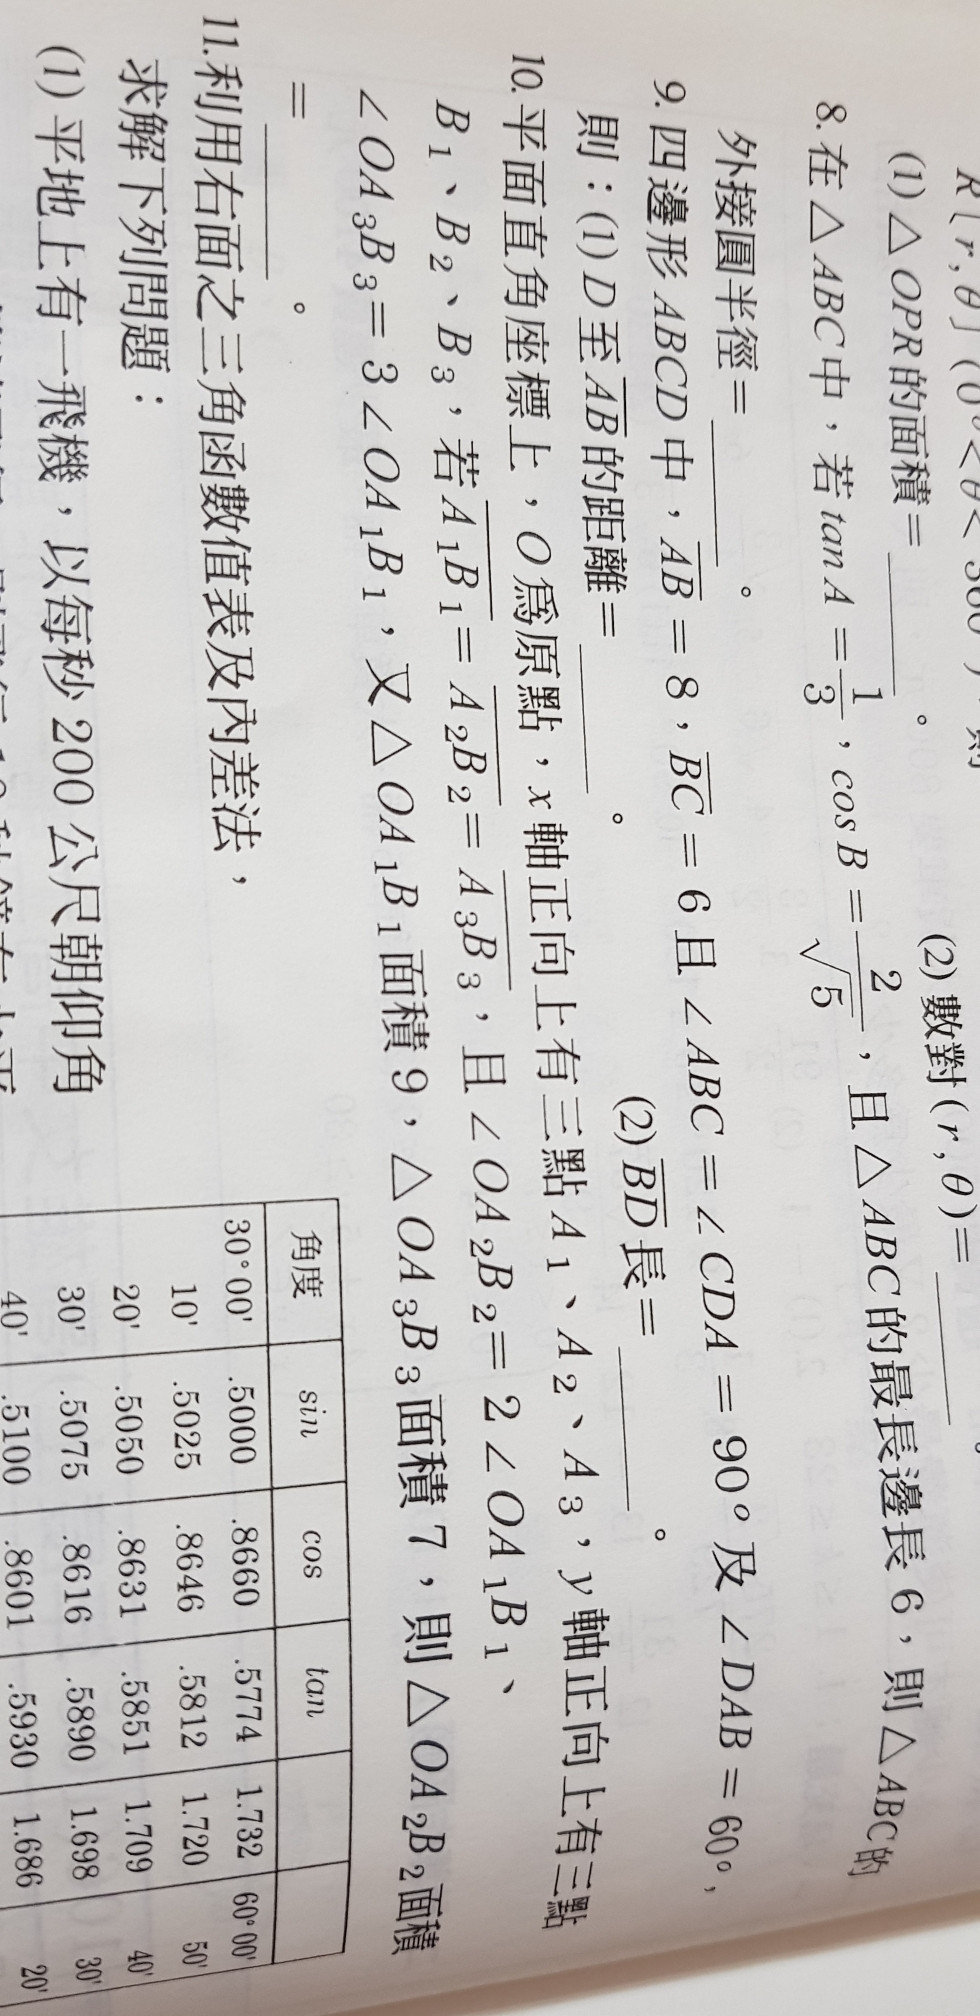 R[r,θ] (0°<θ<360°) 則
(1) △OPR的面積=______。 (2) 數對(r,θ)=______
8.在△ABC中，若tanA=1/3，cosB=2/√5，且△ABC的最長邊長6，則△ABC的
外接圓半徑=______。
9.四邊形ABCD中，A̅B̅=8，B̅C̅=6且∠ABC=∠CDA=90°及∠DAB=60°，
則：(1)D至A̅B̅的距離=______。 (2)B̅D̅長=______。
10.平面直角座標上，O爲原點，x軸正向上有三點A₁、A₂、A₃，y軸正向上有三點
B₁、B₂、B₃，若A̅₁B̅₁=A̅₂B̅₂=A̅₃B̅₃，且∠OA₂B₂=2∠OA₁B₁、
∠OA₃B₃=3∠OA₁B₁，又△OA₁B₁面積9，△OA₃B₃面積7，則△OA₂B₂面積
=______。
11.利用右面之三角函數值表及內差法，
求解下列問題：
(1)平地上有一飛機，以每秒200公尺朝仰角
角度 sin cos tan
30°00' .5000 .8660 .5774 1.732 60°00'
10' .5025 .8646 .5812 1.720 50'
20' .5050 .8631 .5851 1.709 40'
30' .5075 .8616 .5890 1.698 30'
40' .5100 .8601 .5930 1.686 20'